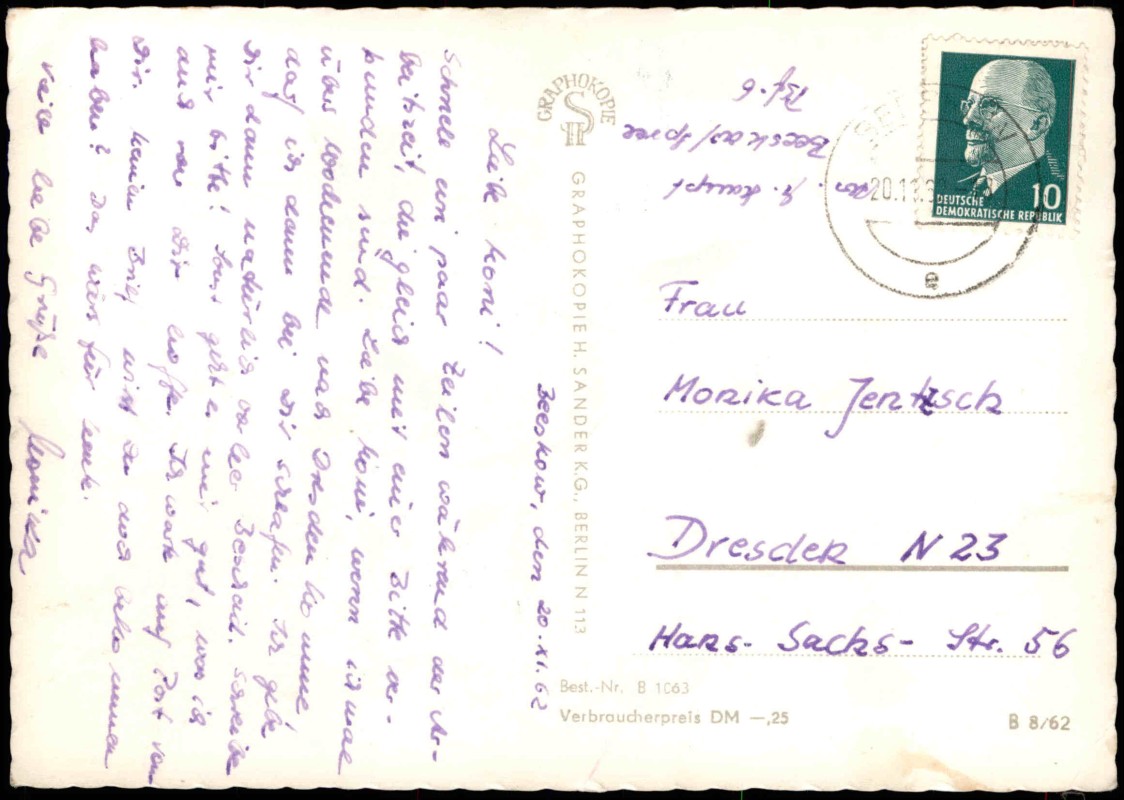 Beeskow, den 20.XI.62
Liebe Moni!
Schnell ein paar Zeilen während der Ar-
beitszeit, die gleich mit einer Bitte ver-
bunden sind. Liebe Moni, wenn ich mal
übers Wochenende nach Dresden komme,
darf ich dann bei Dir schlafen. Ich gebe
Dir dann natürlich vorher Bescheid. Schreibe
mir bitte! Sonst geht es mir gut, was ich
auch von Dir hoffe. Ich warte auf Post von
Dir. Meinen Brief wirst Du doch bekommen
haben? Das wärs für heute.
Viele liebe Grüße Monika
GRAPHOKOPIE
GRAPHOKOPIE H. SANDER K.G., BERLIN N 113
Beeskow/Spree
10
DEUTSCHE
DEMOKRATISCHE REPUBLIK
20.11.6
e
Frau
Monika Jentzsch
Dresden N 23
Hans-Sachs-Str. 56
Best.-Nr. B 1063
Verbraucherpreis DM —,25
B 8/62